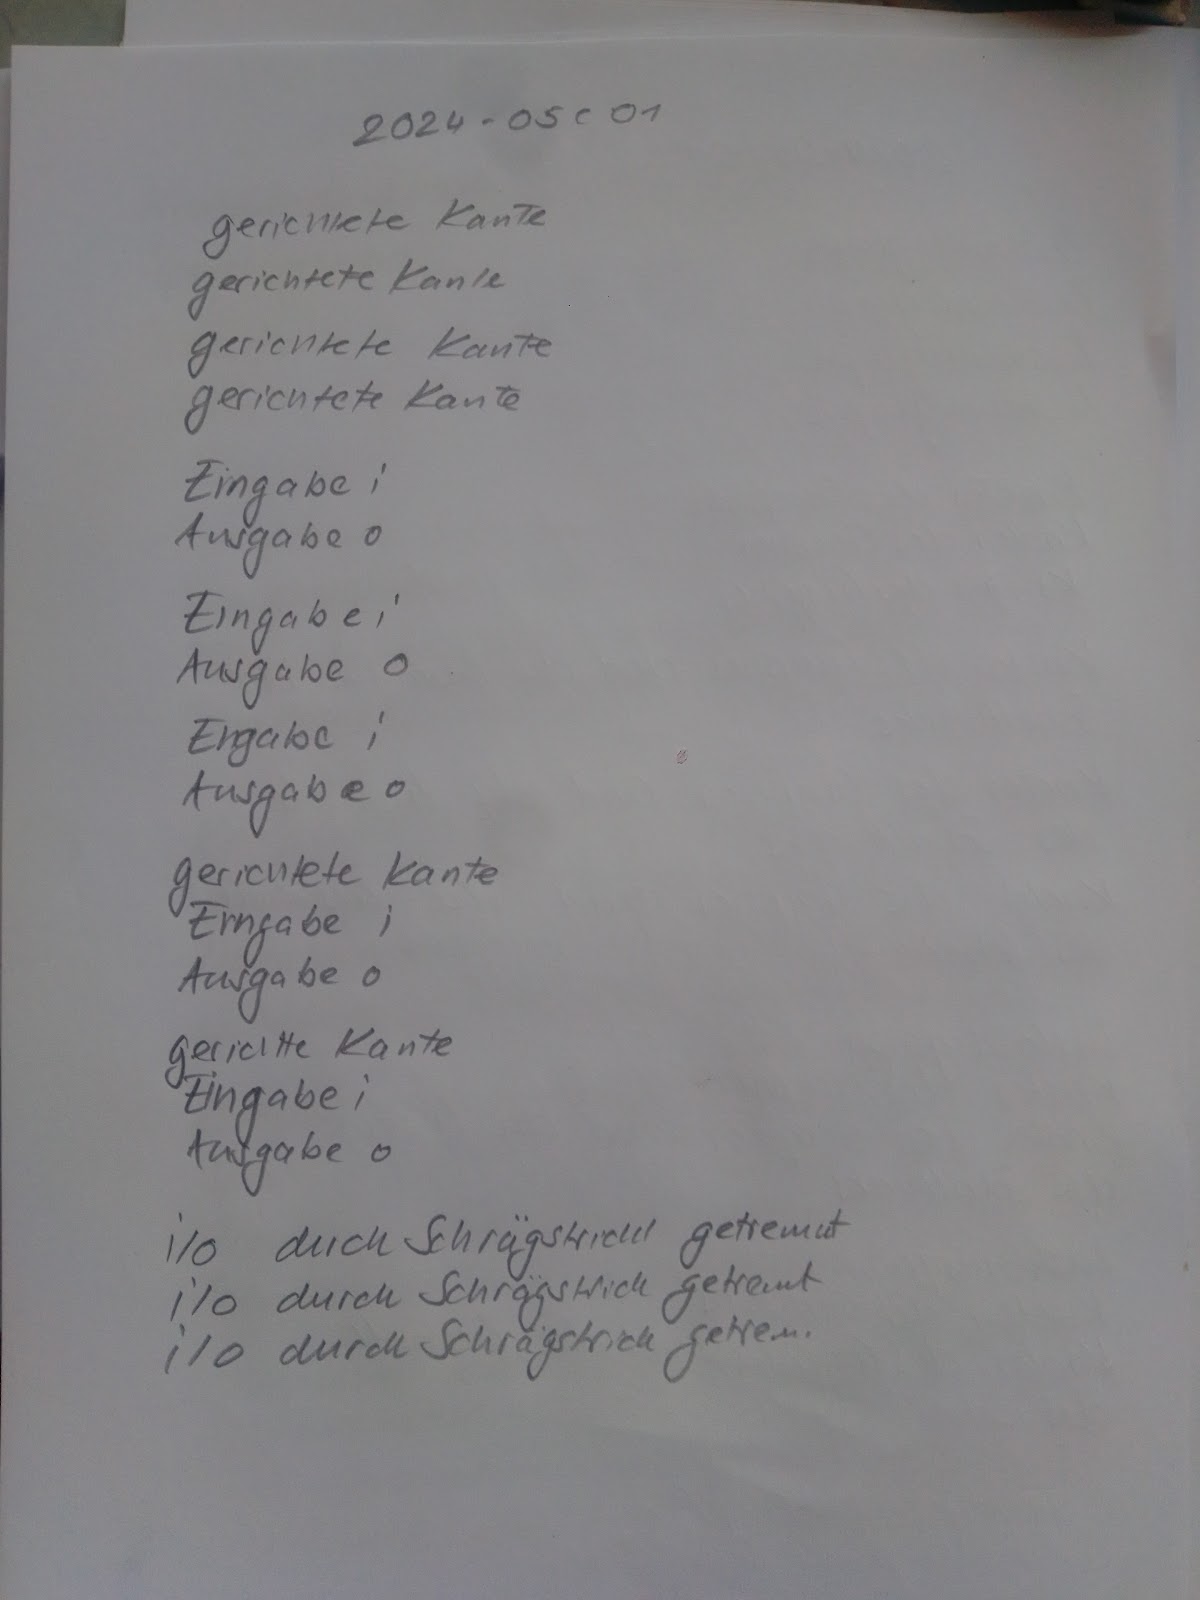 2024-05-01
gerichtete Kante
gerichtete Kante
gerichtete Kante
gerichtete Kante
Eingabe i
Ausgabe o
Eingabe i
Ausgabe o
Engabe i
Ausgabe o
gerichtete Kante
Eingabe i
Ausgabe o
gerichtte Kante
Eingabe i
Ausgabe o
i/o durch Schrägstrich getrennt
i/o durch Schrägstrich getrennt
i/o durch Schrägstrich getren.